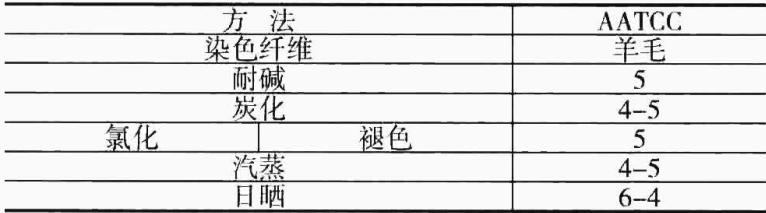 方 法 AATCC
染色纤维 羊毛
耐碱 5
炭化 4-5
氯化 褪色 5
汽蒸 4-5
日晒 6-4